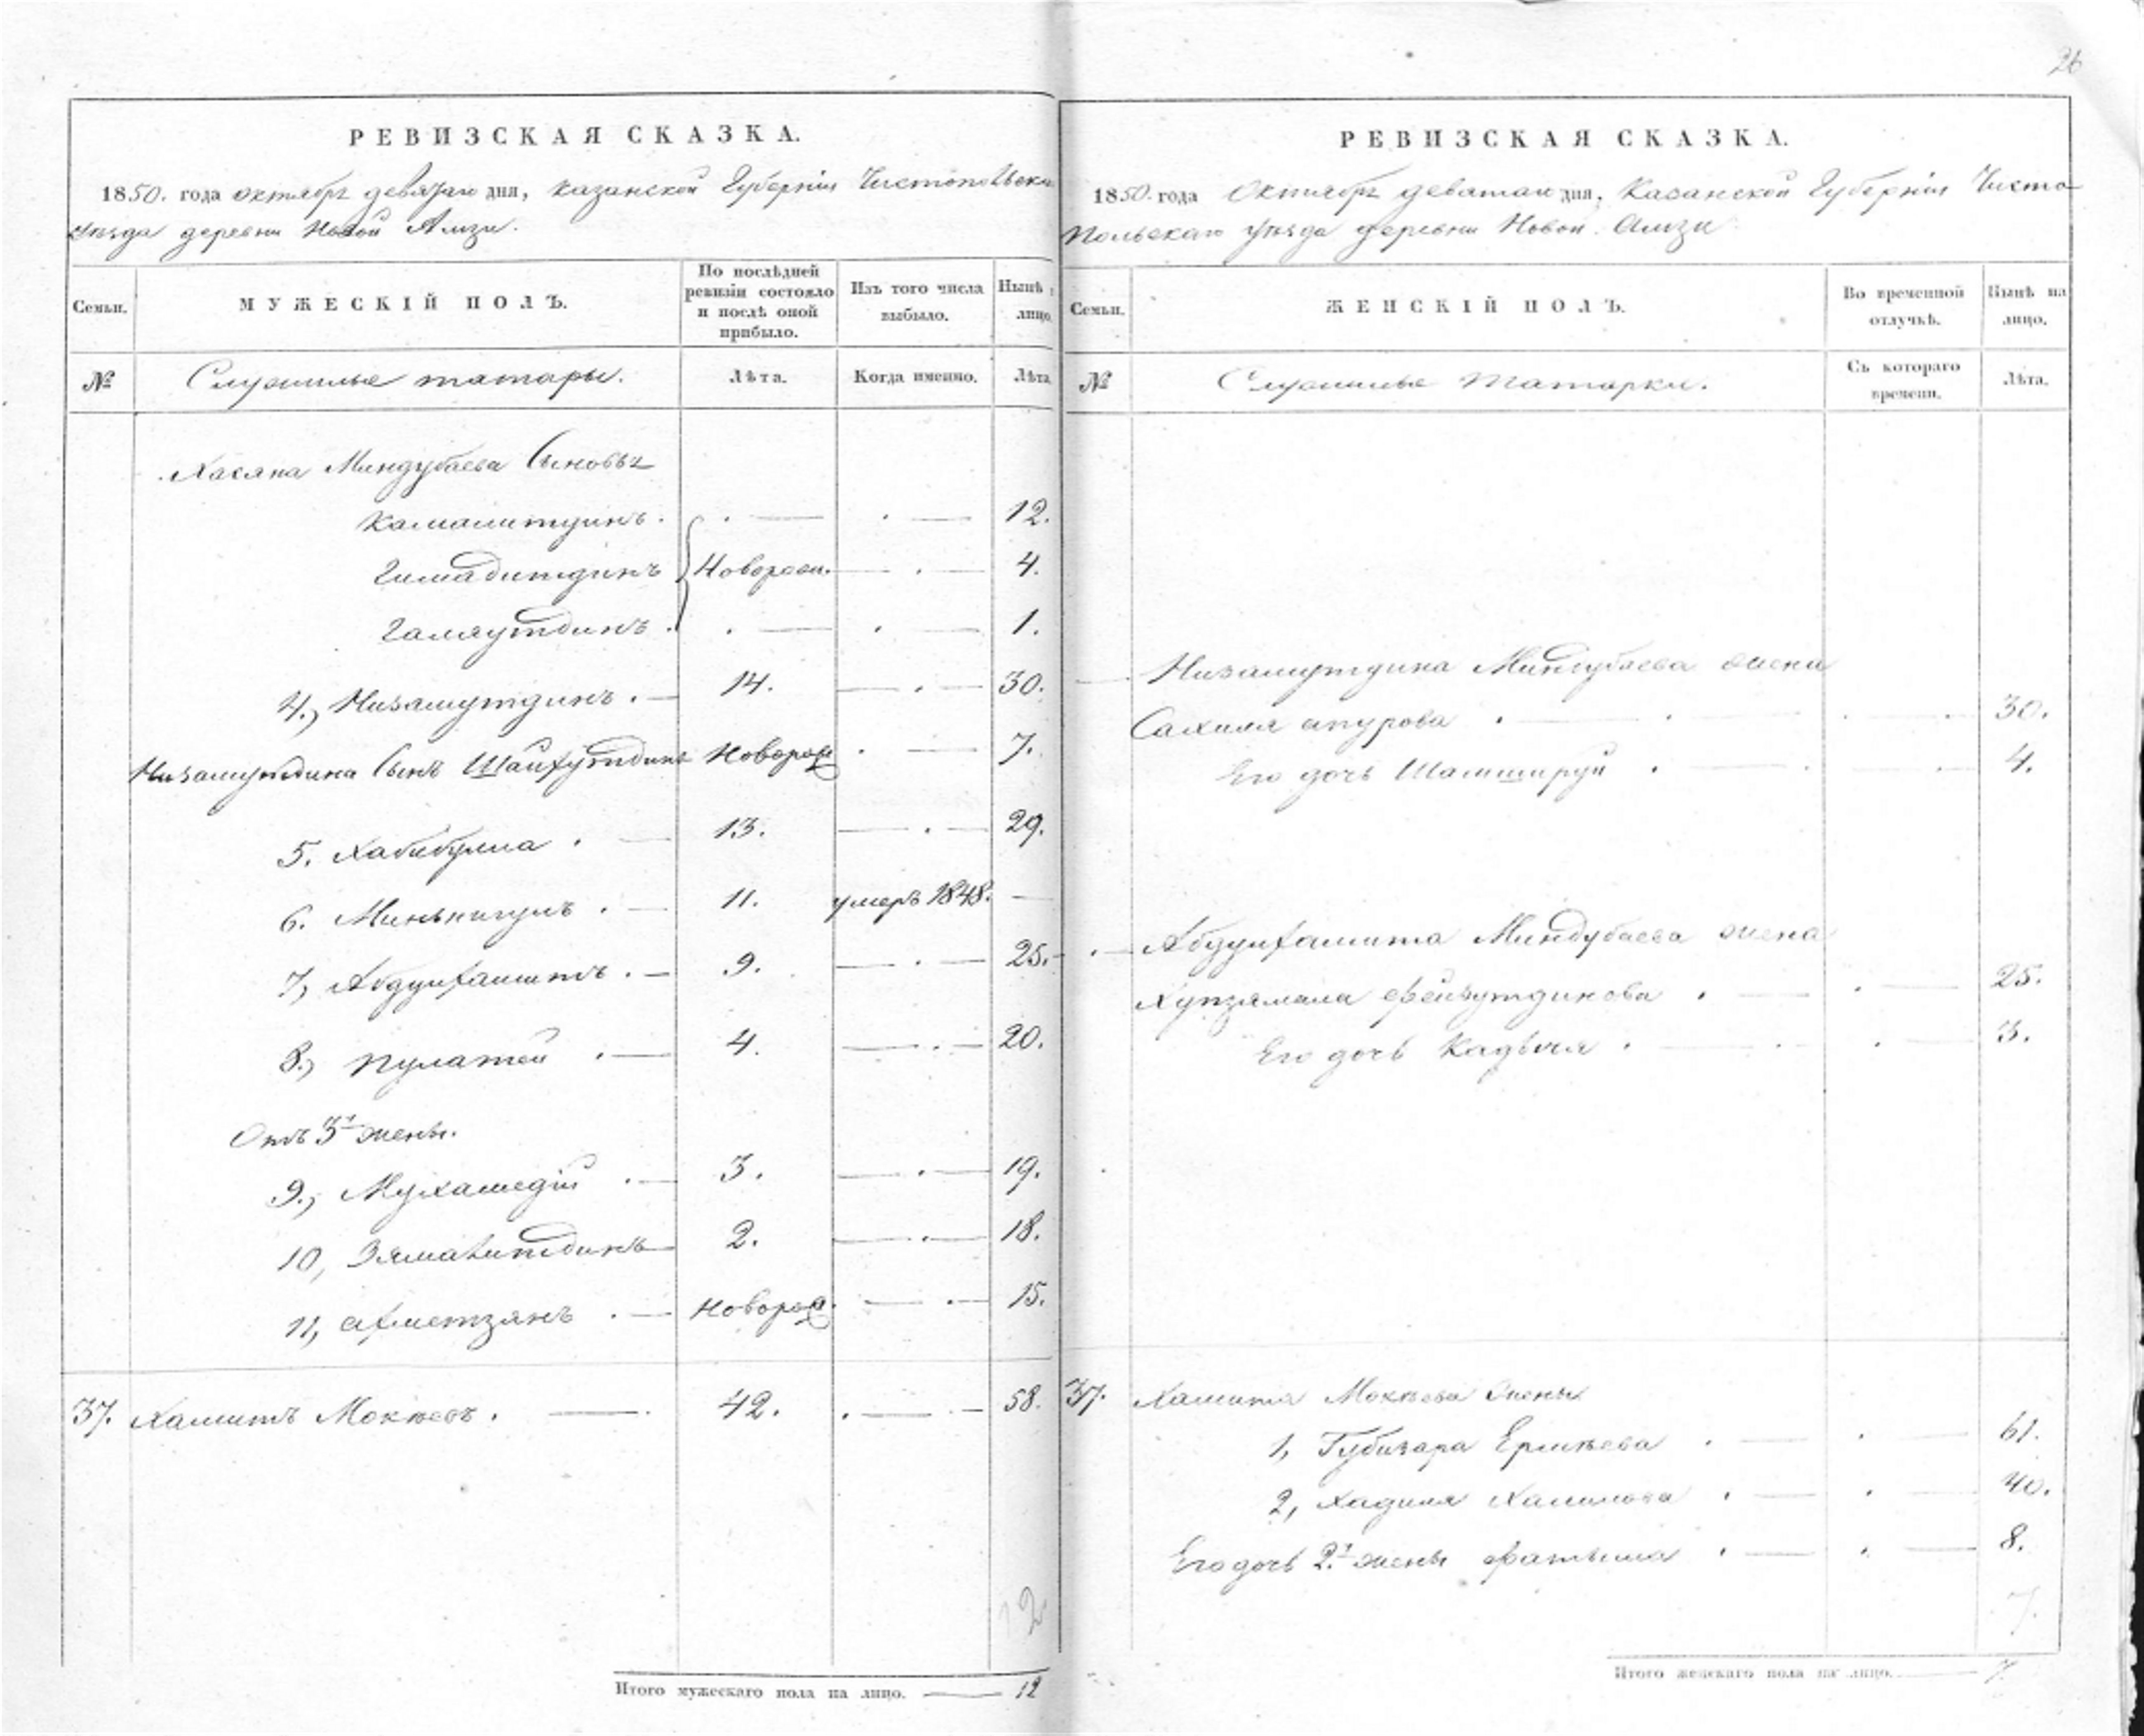 26
РЕВИЗСКАЯ СКАЗКА.
1850. года октября девятаго дня, Казанской Губерніи Чистопольска
уѣзда деревни Новой Амзи.
Семьи. МУЖЕСКІЙ ПОЛЪ. По послѣдней ревизіи состояло и послѣ оной прибыло. Изъ того числа выбыло. Нынѣ лицо.
№ Служилые татары. Лѣта. Когда именно. Лѣта
Хасяна Миндубаева Сыновья
Камалитдинъ. 12.
Гимадитдинъ Новорож. 4.
Галяутдинъ. 1.
4., Низамутдинъ. 14. 30.
Низамутдина Сынъ Шайхутдинъ Новорож 7.
5. Хабибулла. 13. 29.
6. Минькигулъ. 11. умеръ 1848.
7, Абдулхамитъ. 9. 25.
8., Пулатей 4. 20.
Отъ 3й жены.
9., Мухамедій 3. 19.
10, Зямалитдинъ 2. 18.
11, Ахметзянъ Новорож. 15.
37. Хамитъ Мокѣевъ. 42. 58.
12
Итого мужескаго пола на лицо. 12
РЕВИЗСКАЯ СКАЗКА.
1850. года Октября девятаго дня, Казанской Губерніи Чисто-
польскаго уѣзда деревни Новой Амзи
Семьи. ЖЕНСКІЙ ПОЛЪ. Во временной отлучкѣ. Нынѣ на лицо.
№ Служилые татарки. Съ котораго времени. Лѣта.
Низамутдина Миндубаева жена
Салиля 30.
Его дочь Шамшируй 4.
Абдулхамита Миндубаева жена
Хупзямала Фейзутдинова 25.
Его дочь Кадыча 3.
37. Хамита Мокѣева Жены
1, Губизара Ермѣева 61.
2, Хадиля Халилова 40.
Его дочь 2й жены Фатыма 8.
7.
Итого женскаго пола на лицо. 7.